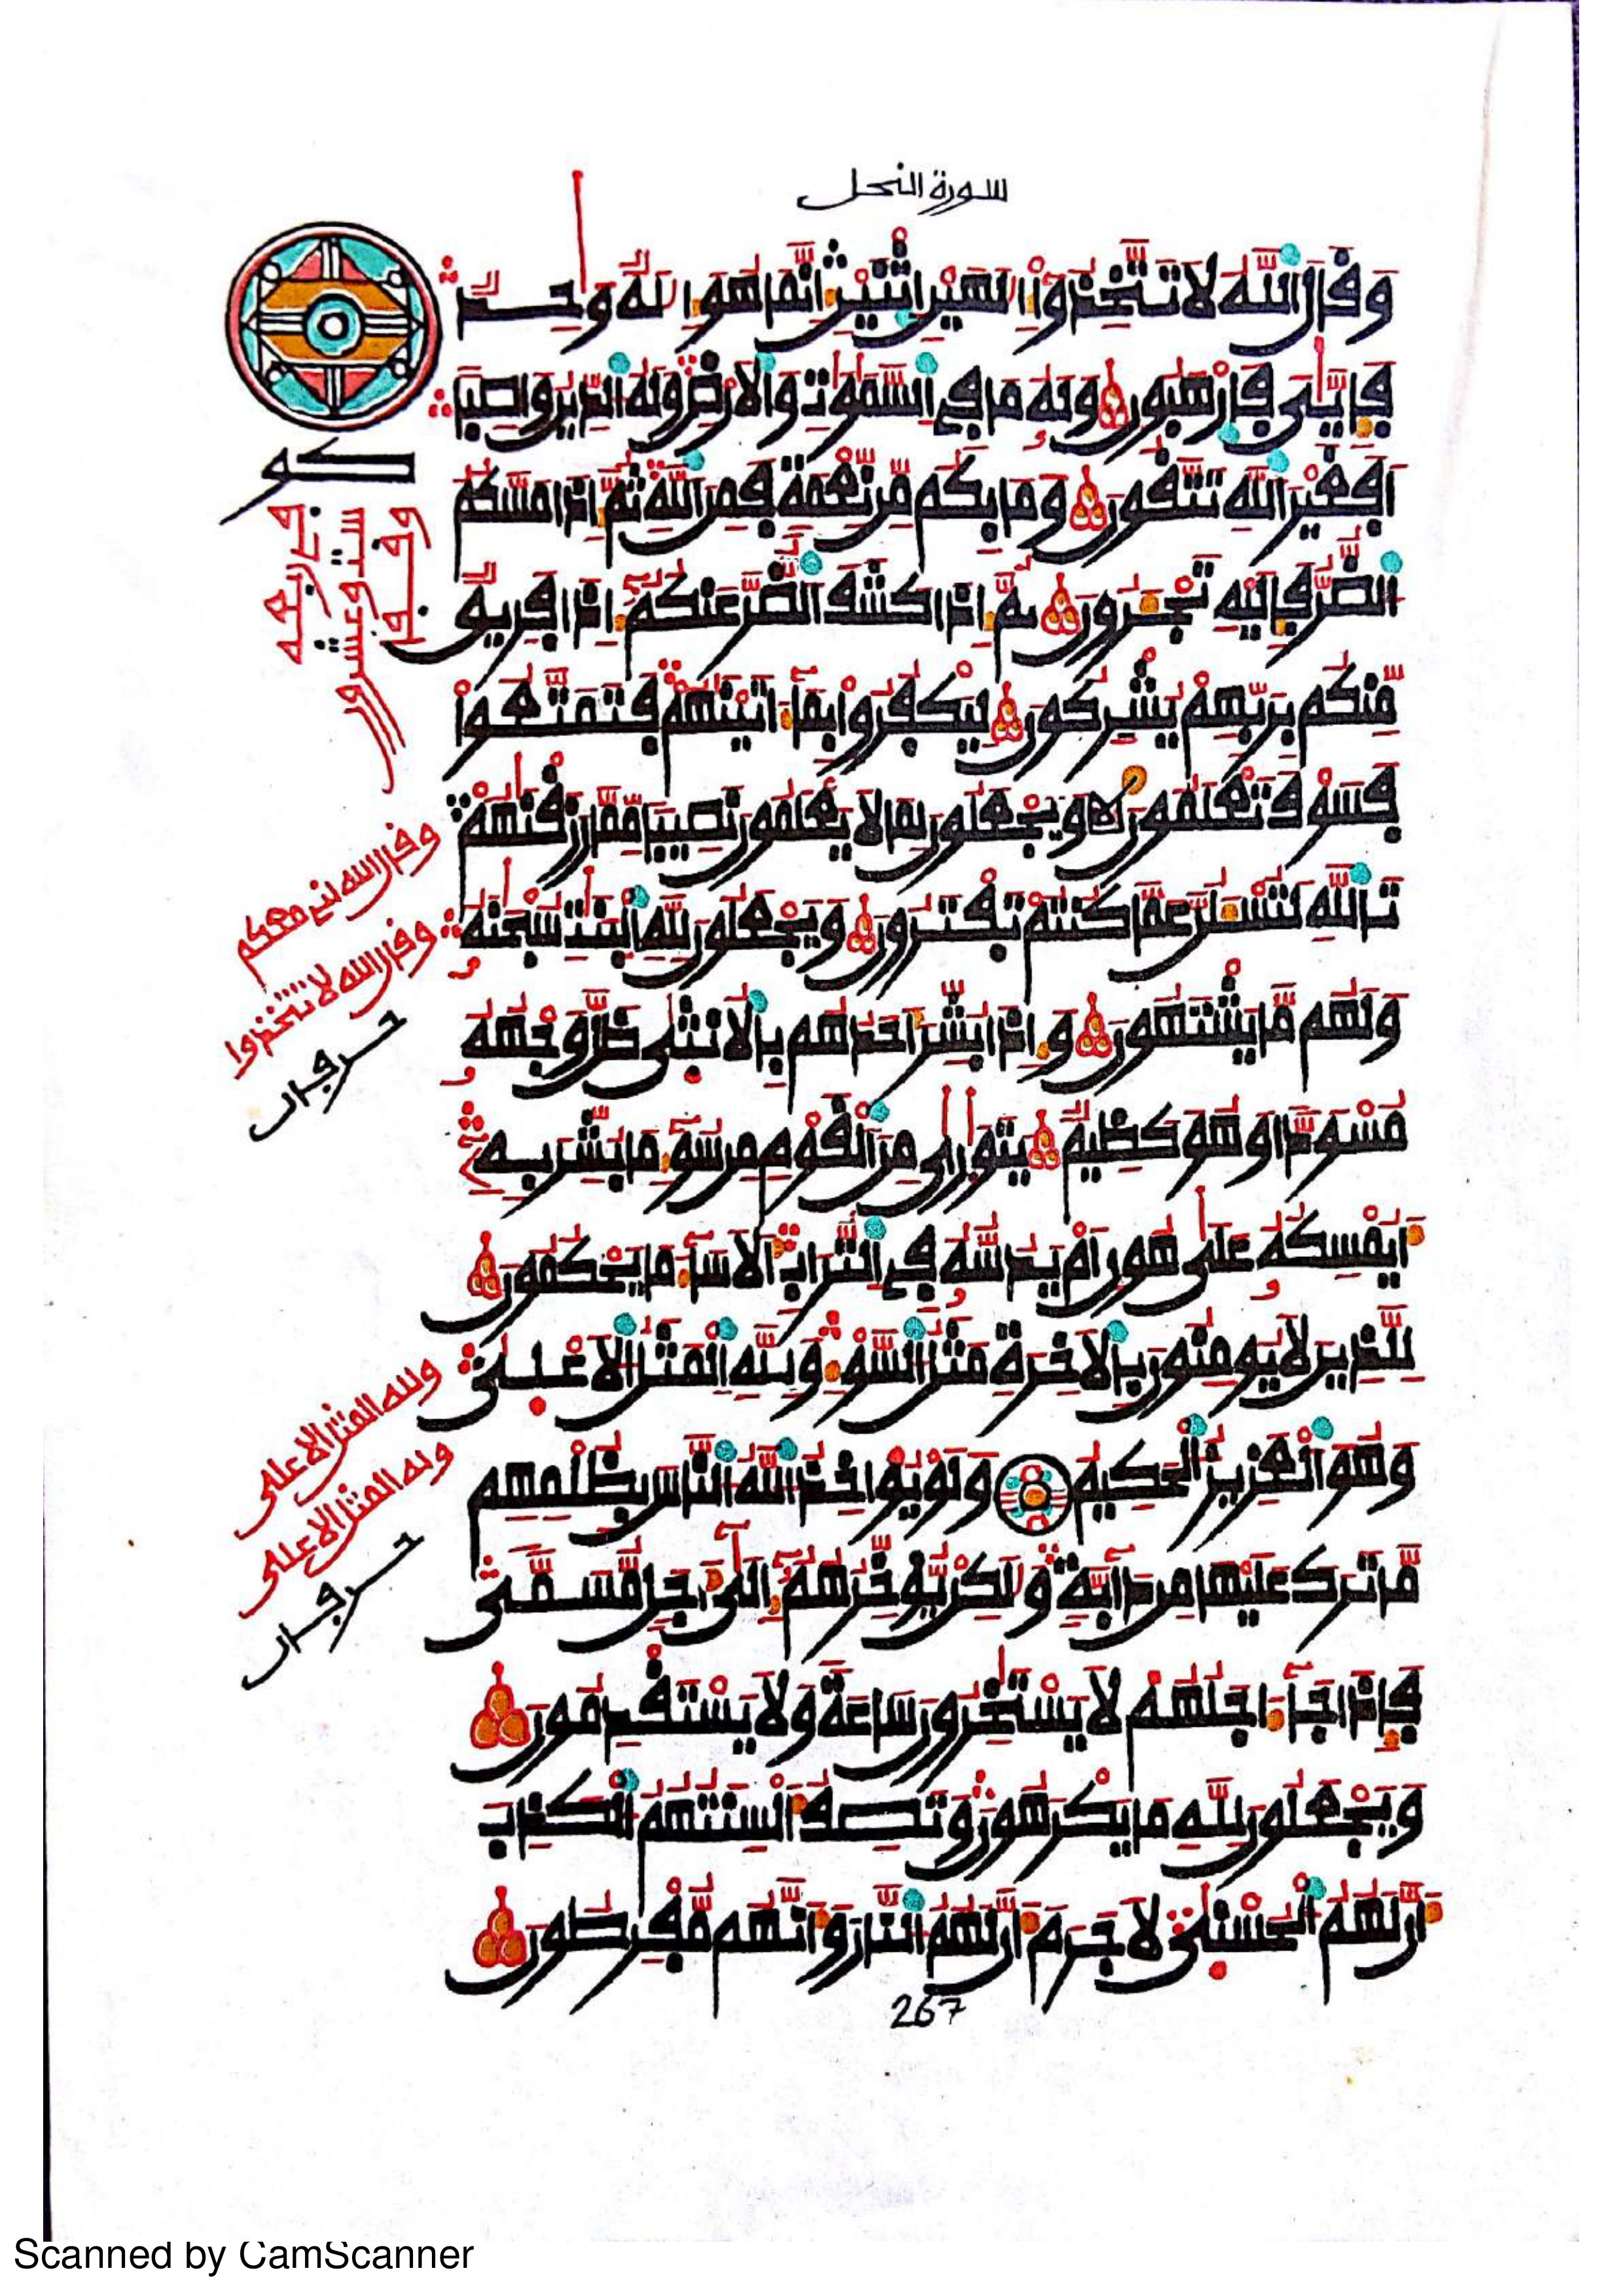 سورة النحل
وَقَالَ اَللَّهُ لَا تَتَّخِذُوٓاْ إِلَٰهَيْنِ اِثْنَيْنِ إِنَّمَا هُوَ إِلَٰهٌ وَٰحِدٌ
فَإِيَّٰىَ فَارْهَبُونِ وَلَهُۥ مَا فِے اِلسَّمَٰوَٰتِ وَالَارْضِ وَلَهُ اُلدِّينُ وَاصِباً
اَفَغَيْرَ اَللَّهِ تَتَّقُونَ وَمَا بِكُم مِّن نِّعْمَةٍ فَمِنَ اَللَّهِ ثُمَّ إِذَا مَسَّكُمُ
اُلضُّرُّ فَإِلَيْهِ تَجْـَٔرُونَ ثُمَّ إِذَا كَشَفَ اَلضُّرَّ عَنكُمُۥٓ إِذَا فَرِيقٌ
مِّنكُم بِرَبِّهِمْ يُشْرِكُونَ لِيَكْفُرُواْ بِمَآ ءَاتَيْنَٰهُمْ فَتَمَتَّعُواْ
فَسَوْفَ تَعْلَمُونَ وَيَجْعَلُونَ لِمَا لَا يَعْلَمُونَ نَصِيباً مِّمَّا رَزَقْنَٰهُمْ
تَاللَّهِ لَتُسْـَٔلُنَّ عَمَّا كُنتُمْ تَفْتَرُونَ وَيَجْعَلُونَ لِلهِ اِلْبَنَٰتِ سُبْحَٰنَهُۥ
وَلَهُم مَّا يَشْتَهُونَ وَإِذَا بُشِّرَ أَحَدُهُم بِالُانثَىٰ ظَلَّ وَجْهُهُۥ
مُسْوَدّاً وَهُوَ كَظِيمٌ يَتَوَٰرَىٰ مِنَ اَلْقَوْمِ مِن سُوٓءِ مَا بُشِّرَ بِهِۦٓ
أَيُمْسِكُهُۥ عَلَىٰ هُونٍ اَمْ يَدُسُّهُۥ فِے اِلتُّرَابِ أَلَا سَآءَ مَا يَحْكُمُونَ
لِلذِينَ لَا يُومِنُونَ بِالَاخِرَةِ مَثَلُ اُلسَّوْءِ وَلِلهِ اِلْمَثَلُ اُلَاعْلَىٰ
وَهُوَ اَلْعَزِيزُ اُلْحَكِيمُ وَلَوْ يُوَاخِذُ اُللَّهُ اُلنَّاسَ بِظُلْمِهِم
مَّا تَرَكَ عَلَيْهَا مِن دَآبَّةٍ وَلَٰكِنْ يُّوَخِّرُهُمُۥٓ إِلَىٰٓ أَجَلٍ مُّسَمّىً
فَإِذَا جَآءَ اجَلُهُمْ لَا يَسْتَٰخِرُونَ سَاعَةً وَلَا يَسْتَقْدِمُونَ
وَيَجْعَلُونَ لِلهِ مَا يَكْرَهُونَ وَتَصِفُ أَلْسِنَتُهُمُ اُلْكَذِبَ
أَنَّ لَهُمُ اُلْحُسْنَىٰ لَا جَرَمَ أَنَّ لَهُمُ اُلنَّارَ وَأَنَّهُم مُّفْرَطُونَ
وقال الله إني معكم
وقال الله لا تتخذوا
حرفان
ولله المثل الاعلى
وله المثل الاعلى
حرفان
267
Scanned by CamScanner